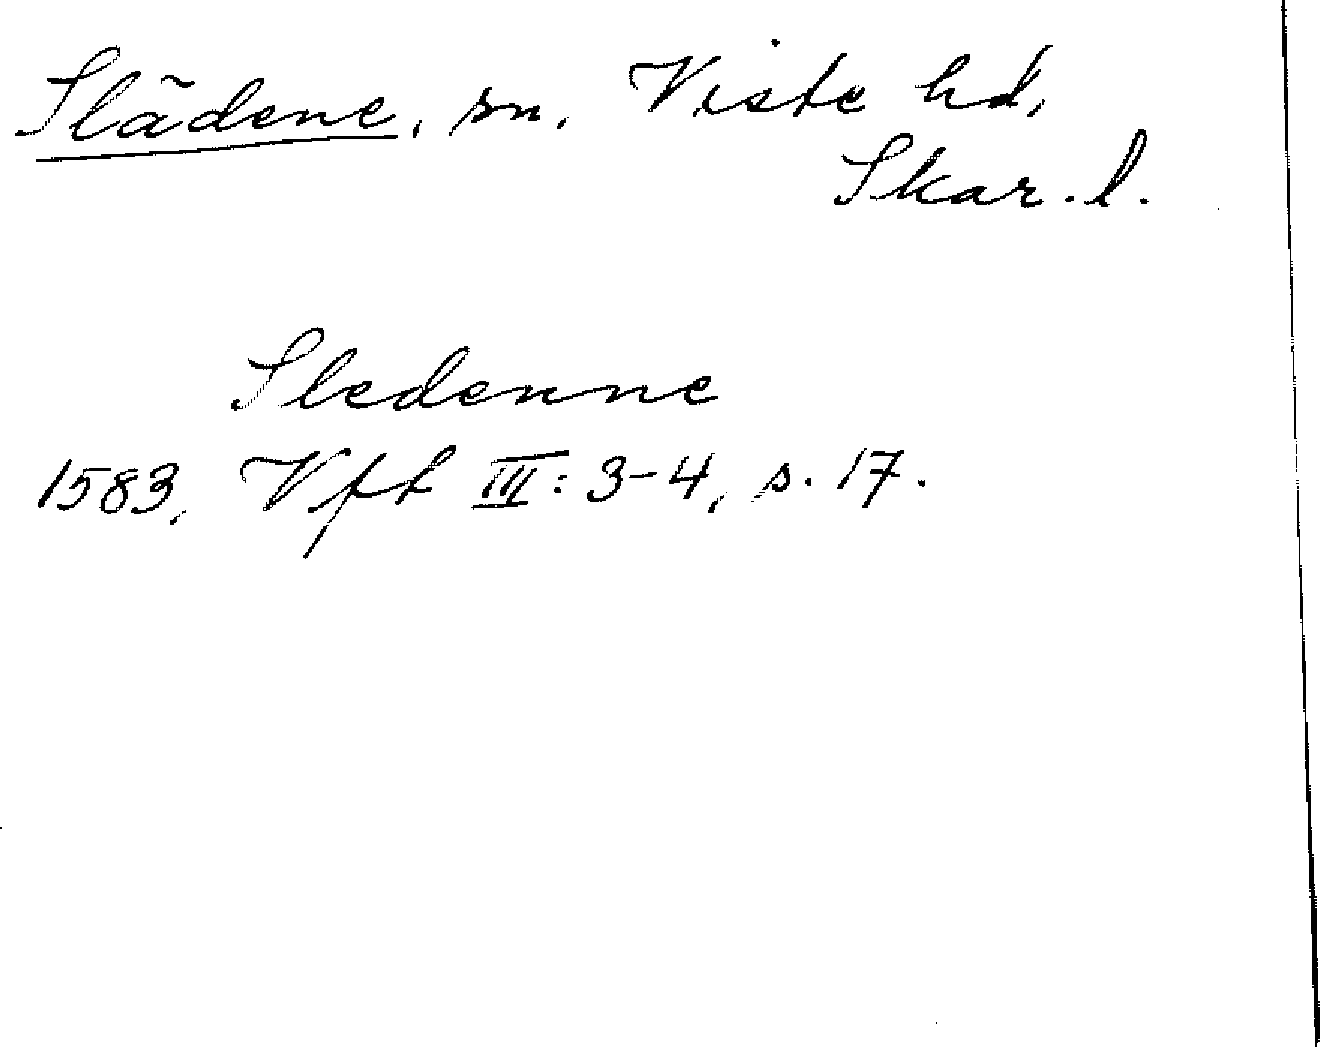 Slädene, sn. Viste hd,
Skar. l.
Sledenne
1583, Vft III: 3-4, s. 17.